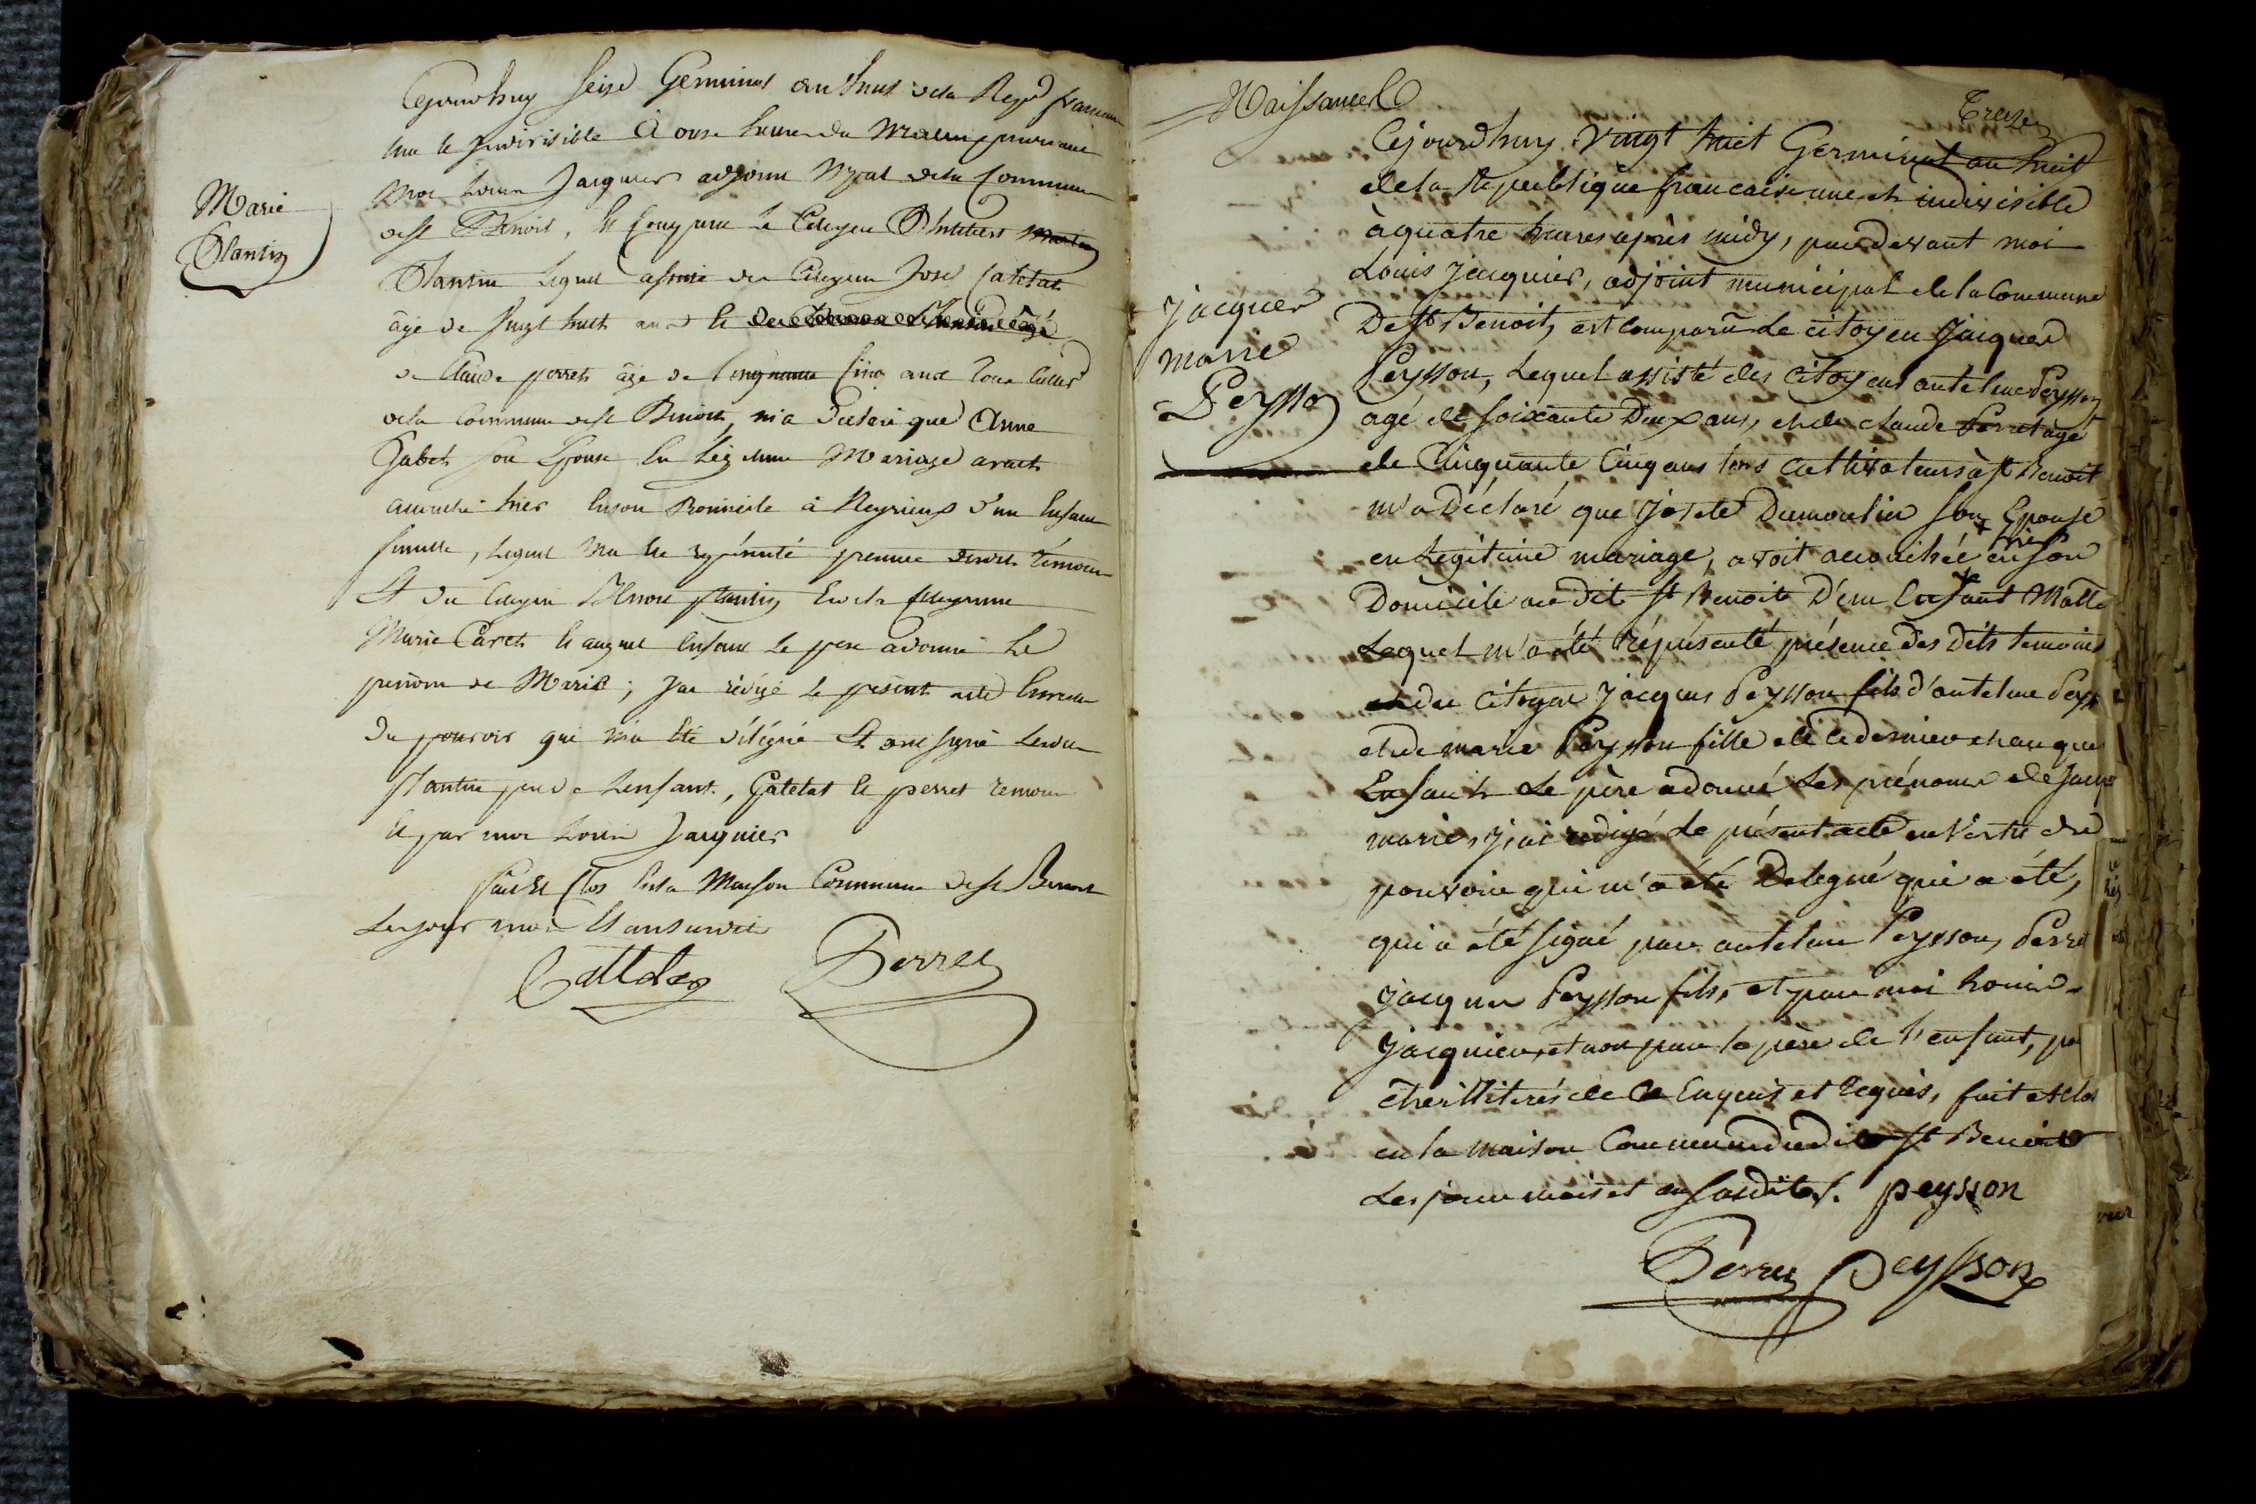 Marie
Plantin
Cejourdhuy seize Germinal an huit de la Repq francaise
une et Indivisible à onze heures du Matin pardevant
moi Louis Jacquier adjoint Mpal de la Commune
de St Benoit, Est Comparu le Citoyen
Plantin Lequel assisté des Citoyens José Catelat
âgé de Vingt huit ans Et
de Claude perret âgé de Cinquante Cinq ans tous
de la Commune de St Benoit, m'a Déclaré que Anne
Gabet son Epouse En Légitime Mariage avait
accouché hier En son Domicile à Neyrieux d'un Enfant
femelle, Lequel m'a été représenté présence desdits témoins
Et du Citoyen plantin Et de la Citoyenne
Marie Caret Et auquel Enfant Le pere a donné Le
prénom de Marie; J'ai rédigé Le présent acte En vertu
Du pouvoir qui m'a été délégué Et ont signé
plantin père de L'enfant, Catelat Et perret temoins
Et par moi Louis Jacquier
fait Et Clos En la Maison Commune de St Benoit
Les jour mois Et an susdits
Cattelas Perret
Naissance
Treize
Cejourdhuy Vingt huit Germinal an huit
de la Republique francaise une et indivisible
à quatre heures après midy, pardevant moi
Louis Jacquier, adjoint municipal de la Commune
De St Benoit, est comparu Le citoyen Jacques
Peysson, Lequel assisté des citoyens antelme Peysson
agé de soixante Deux ans, et de claude Perret agé
de Cinquante Cinq ans tous cultivateurs à St Benoit
m'a Déclaré que Josete Dumoulin son Epouse
en Legitime mariage, avoit accouchée hier en son
Domicile au dit St Benoit D'un Enfant Malle
Lequel m'a été représenté présence des dits temoins
et du citoyen jacques Peysson fils d'antelme Peys
et de marie Peysson fille de ce dernier et auquel
Enfant Le père a donné Les prénoms de Jacqu
marie, j'ai redigé Le présent acte en Vertu du
pouvoir qui m'a été Delegué qui a été,
qui a été signé par antelme Peysson, Perret
jacques Peysson fils, et par moi Louis
Jacquier, et non par le père de l'enfant, po
etre illitéré de ce Enquis et Requis, fait et clos
en la maison Commune dudit St Benoit
Les jour mois et an susdits. peysson
Perret Peysson
Jacques
marie
Peysson